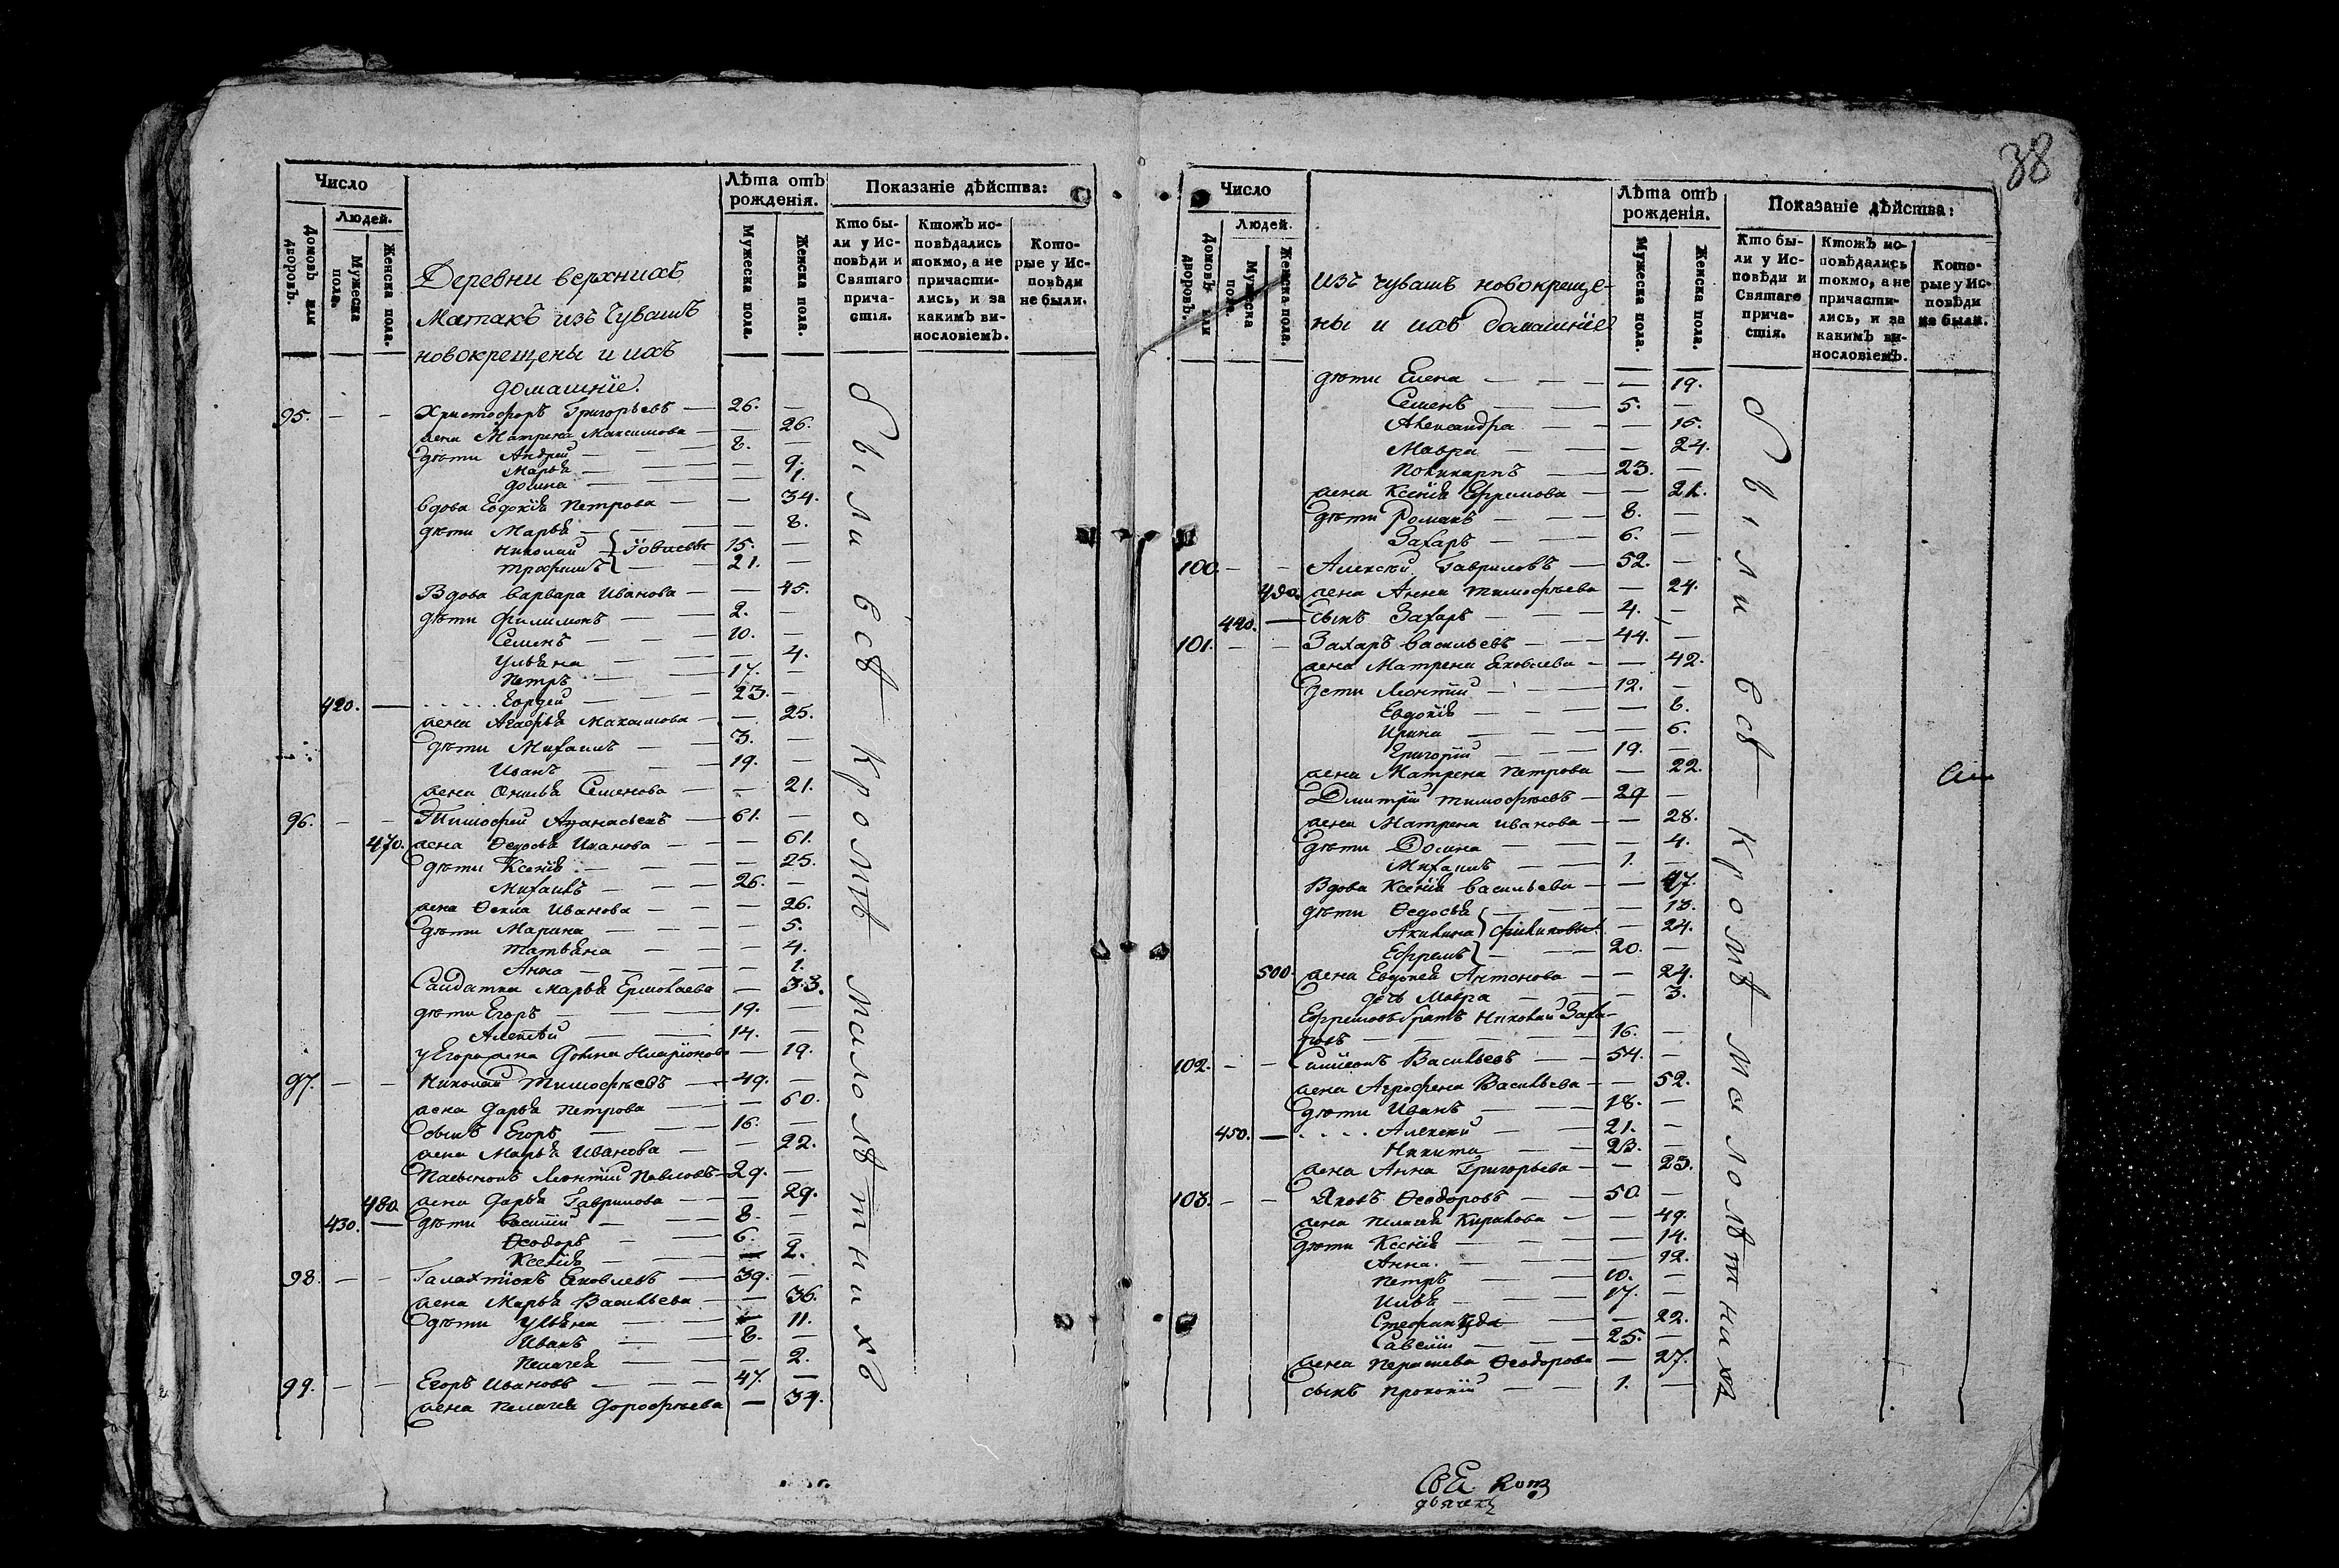 Число
Людей.
Домовъ или дворовъ.
Мужеска пола.
Женска пола.
Лѣта отъ рожденія.
Мужеска пола.
Женска пола.
Показаніе дѣйства:
Кто были у Исповѣди и Святаго причастія.
Ктожъ исповѣдались токмо, а не причастились, и за какимъ винословіемъ.
Которые у Исповѣди не были.
Деревни верхнихъ
Матакъ изъ Чувашъ
новокрещены и ихъ
домашніе.
95. — — Христофоръ Григорьевъ — 26. —
жена Матрена Максимова — — 26.
дѣти Андрей — 8. —
Марья — — 9.
— — 1.
вдова Евдокія Петрова — — 34.
дѣти Марья — — 8.
Николай — 15. —
Трофимъ — 21. —
Вдова Варвара Иванова — — 45.
дѣти Филимонъ — 2. —
Семенъ — 10. —
Ульяна — — 4.
Петръ — 17. —
420. — Гордей — 23. —
жена Агафья Максимова — — 25.
дѣти Михаилъ — 3. —
Иванъ — 19. —
жена Семенова — — 21.
96. — — Тимофей — 61. —
470. жена Ѳедосья Иванова — — 61.
дѣти Ксенія — — 25.
Михаилъ — 26. —
жена Ѳекла Иванова — — 26.
дѣти Марина — — 5.
Татьяна — — 4.
Анна — — 1.
Салдатка Марья Ермолаева — 33.
дѣти Егоръ — 19. —
Алексѣй — 14. —
у Егора жена — 19.
97. — — Николай Тимофѣевъ — 49. —
жена Дарья Петрова — — 60.
сынъ Егоръ — 16. —
жена Марья Иванова — — 22.
Леонтій Павловъ — 29. —
480. жена Дарья Гаврилова — — 29.
430. — дѣти Василій — 8. —
Ѳеодоръ — 6. —
Ксенія — — 2.
98. — — Галактіонъ Яковлевъ — 39. —
жена Марья Васильева — — 36.
дѣти Ульяна — — 11.
Иванъ — 8. —
Пелагея — — 2.
99. — — Егоръ Ивановъ — 47. —
жена Пелагея Дорофѣева — 34.
были всѣ кромѣ малолѣтнихъ
38
Число
Людей.
Домовъ или дворовъ.
Мужеска пола.
Женска пола.
Лѣта отъ рожденія.
Мужеска пола.
Женска пола.
Показаніе дѣйства:
Кто были у Исповѣди и Святаго причастія.
Ктожъ исповѣдались токмо, а не причастились, и за какимъ винословіемъ.
Которые у Исповѣди не были.
изъ чувашъ новокреще-
ны и ихъ домашніе
дѣти Елена — — 19.
Семенъ — 5. —
Александра — — 15.
Мавра — — 24.
Поликарпъ — 23. —
жена Ксенія Ефремова — — 21.
дѣти Романъ — 8. —
Захаръ — 6. —
100. — — Алексѣй Гавриловъ — 52. —
490. жена Анна Тимофѣева — 24.
440. — сынъ Захаръ — 4. —
101. — — Захаръ Васильевъ — 44. —
жена Матрена Яковлева — — 42.
дѣти Леонтій — 12. —
Евдокія — —
Ирина — — 6.
Григорій — 19. —
жена Матрена Петрова — 22.
Дмитрій Тимофѣевъ — 29 —
жена Матрена Иванова — — 28.
дѣти — — 4.
Михаилъ — 1. —
Вдова Ксенія Васильева — — 47.
дѣти Ѳедосья — — 13.
Акилина — 24.
Ефремъ — 20. —
500. жена Антонова — — 24.
дочь Мавра — — 3.
Ефремовъ братъ Николай Заха-
ровъ — 16. —
102. — — Васильевъ — 54. —
жена Агрофена Васильева — — 52.
дѣти Иванъ — 18. —
450. — Алексѣй — 21. —
Никита — 23. —
жена Анна Григорьева — — 23.
103. — — Яковъ Ѳеодоровъ — 50 —
жена Пелагея — — 49.
дѣти Ксенія — — 14.
Анна. — — 12.
Петръ — 10. —
Илья — 17. —
— 22.
Савелій — 25. —
жена Ѳеодорова — 27.
сынъ Прокопій — 1. —
были всѣ кромѣ малолѣтнихъ